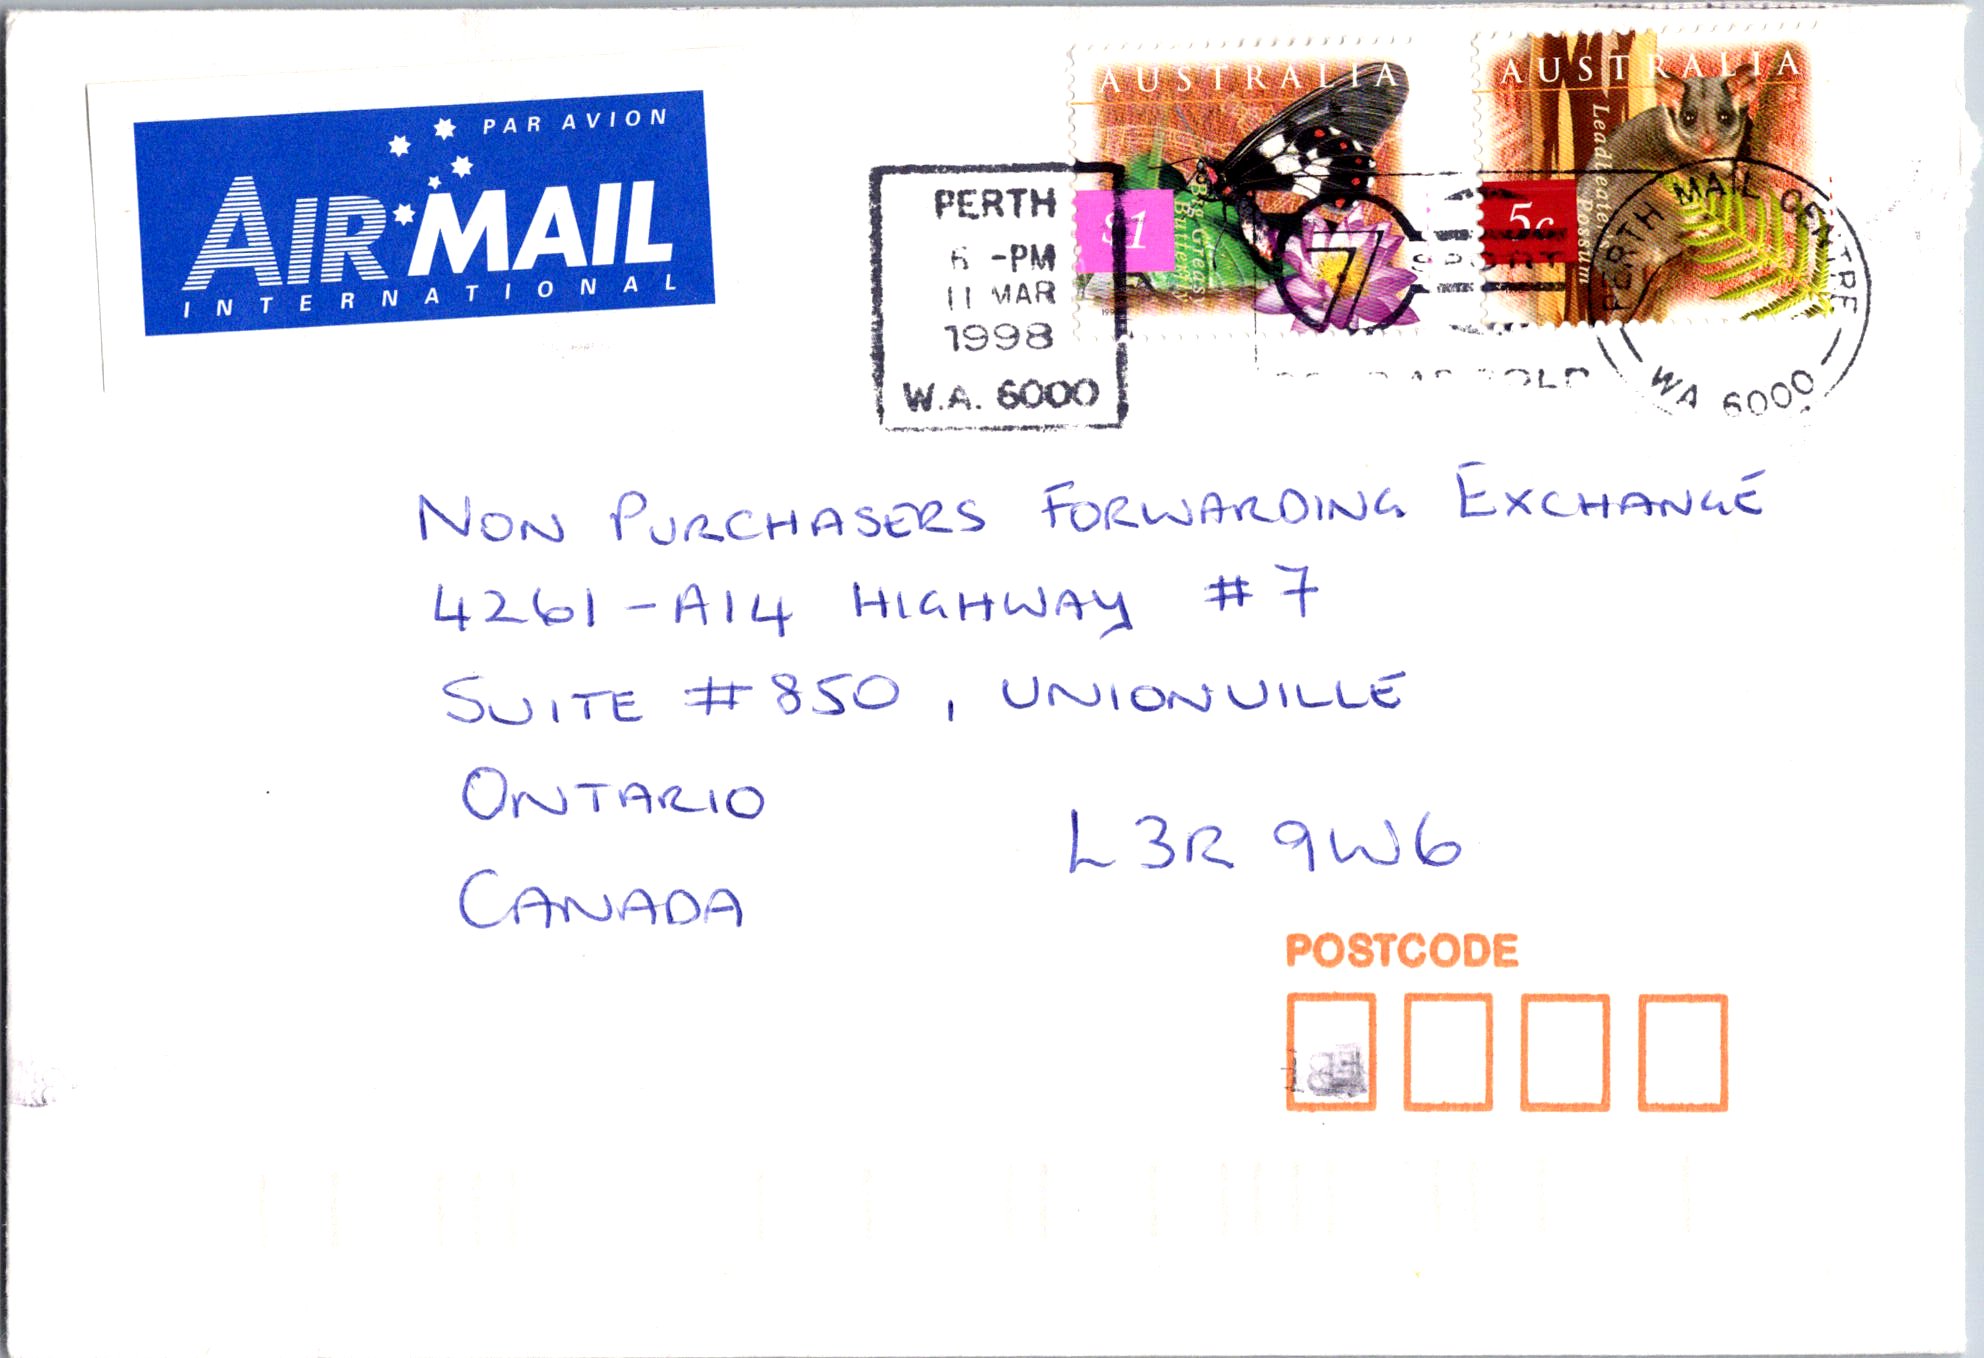 PAR AVION
AIRMAIL
INTERNATIONAL
AUSTRALIA
$1
Big Greasy
Butterfly
AUSTRALIA
5c
Leadbeater's Possum
PERTH
6 -PM
11 MAR
1998
W.A. 6000
7
PERTH MAIL CENTRE
WA 6000
NON PURCHASERS FORWARDING EXCHANGE
4261-A14 HIGHWAY #7
SUITE #850, UNIONVILLE
ONTARIO
L3R 9W6
CANADA
POSTCODE